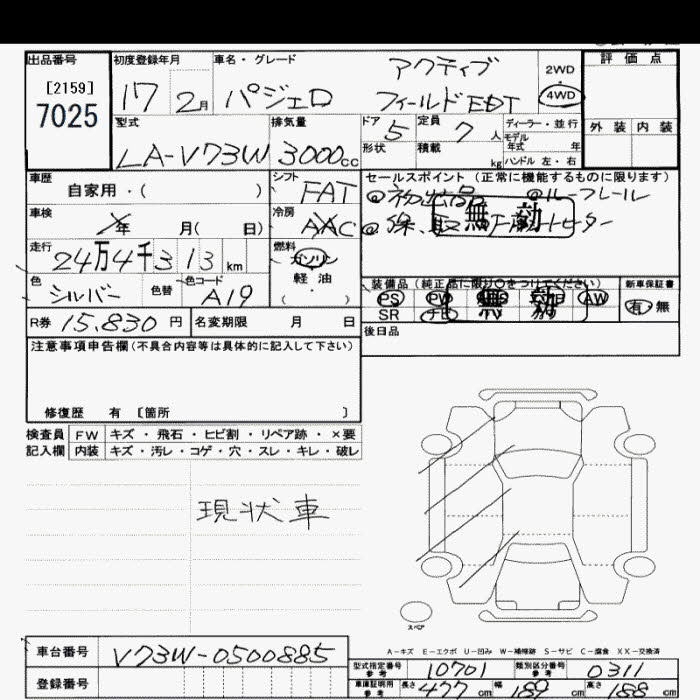 出品番号 初度登録年月 車名・グレード アクティブ 2WD 評価点
[2159] 17 2月 パジェロ フィールドEDT 4WD
7025 型式 排気量 ドア 5 定員 7 人 ディーラー・並行 外装 内装
モデル年式 年
LA-V73W 3000cc 形状 積載 kg ハンドル 左・右
車歴 シフト セールスポイント (正常に機能するものに限ります)
自家用・( ) FAT ルーフレール
車検 年 月( 日) 冷房 AAC 無効
走行 24万4千313km 燃料 ガソリン
軽油
( ・ )
色 シルバー 色替 色コード A19
装備品 (純正品に限り○をつけてください) 新車保証書
PS PW 無効 AW 有・無
SR ナビ
R券 15,830円 名変期限 月 日 後日品
注意事項申告欄(不具合内容等は具体的に記入して下さい)
修復歴 有 [箇所 ]
検査員 FW キズ・飛石・ヒビ割・リペア跡・×要
記入欄 内装 キズ・汚レ・コゲ・穴・スレ・キレ・破レ
現状車
スペア
A-キズ E-エクボ U-凹み W-補修跡 S-サビ C-腐食 XX-交換済
車台番号 V73W-0500885
型式指定番号参考 10701 類別区分番号参考 0311
登録番号
車庫証明用参考 長さ 477cm 幅 cm 高さ 188cm